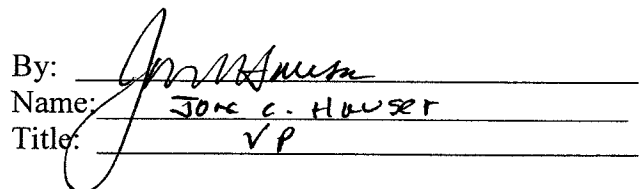 By:
Name: C. Hauser
Title: VP